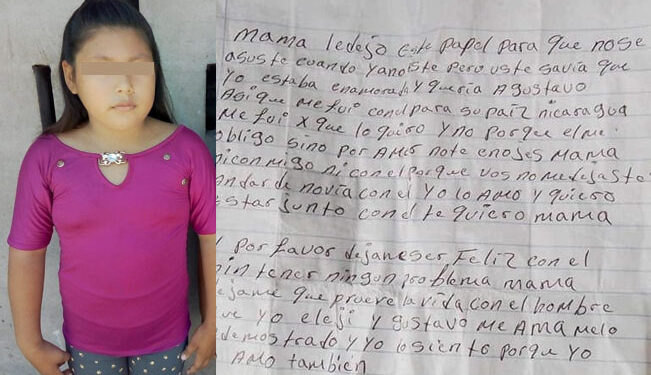 mama ledejo este papel para que no se
asuste cuando ya no iste pero uste savia que
Yo estaba enamorada y queria A gustavo
Asi que me fui con el para su paiz nicaragua
me fui x que lo quiero y no porque el me
obligo sino por AMOR no te enojes MAMA
ni conmigo ni con el porque vos no me dejaste
andar de novia con el Yo lo AMO y quiero
estar junto con el te quiero mama
por favor dejame ser Feliz con el
sin tener ningun problema mama
dejame que prueve la vida con el hombre
que Yo eleji y gustavo me Ama melo
demostrado y Yo lo siento porque Yo
AMO también